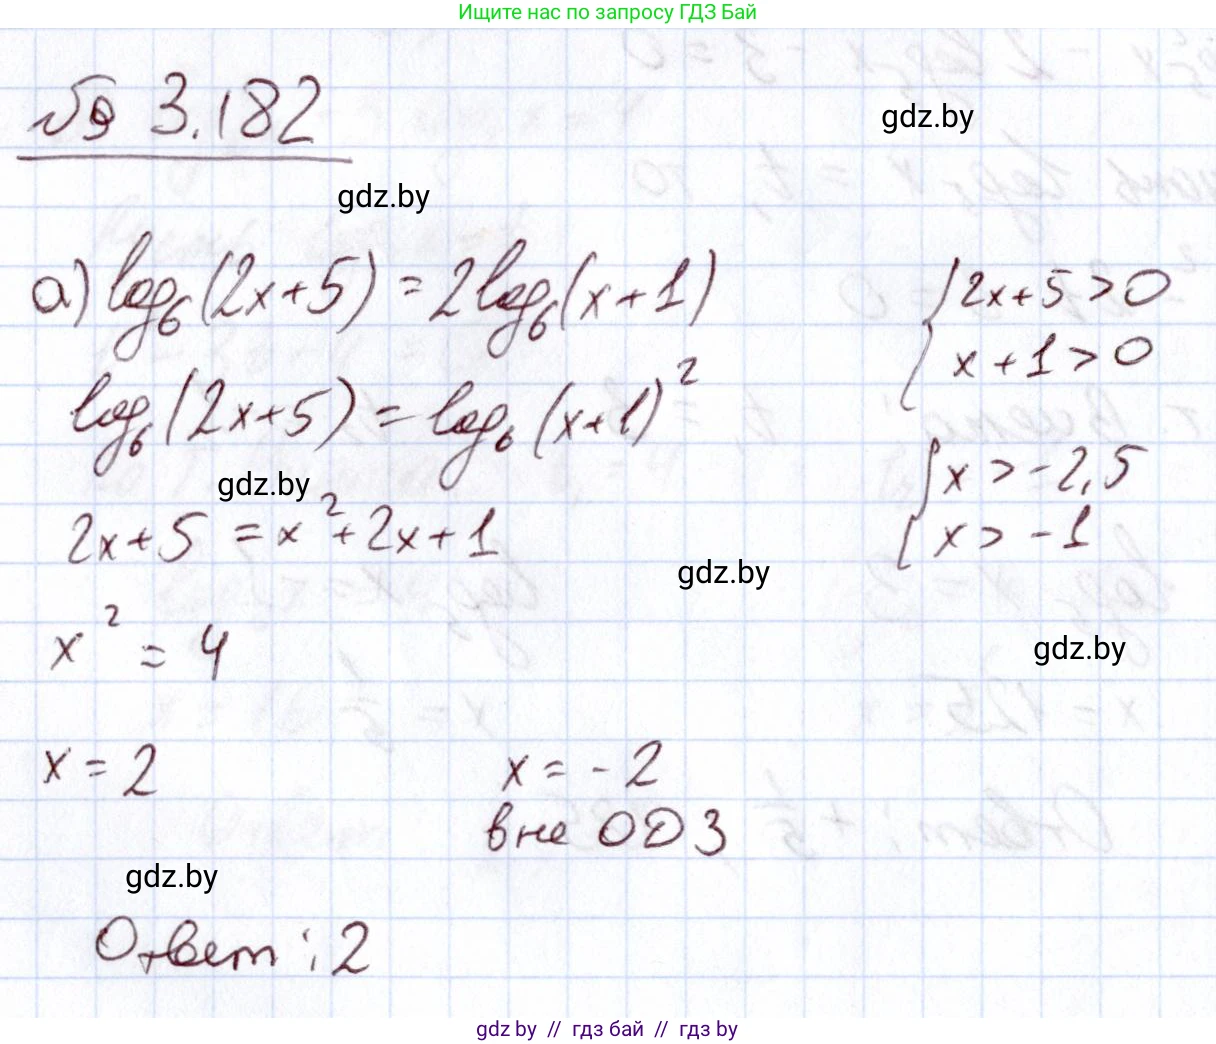 Ищите нас по запросу ГДЗ Бай
№ 3.182
gdz.by
gdz.by
а) log₆(2x+5) = 2log₆(x+1)
{2x+5>0
x+1>0
log₆(2x+5) = log₆(x+1)²
{x>-2,5
x>-1
gdz.by
2x+5 = x²+2x+1
gdz.by
x² = 4
gdz.by
x = 2
x = -2
вне ОДЗ
gdz.by
Ответ: 2
gdz.by // гдз бай // гдз by